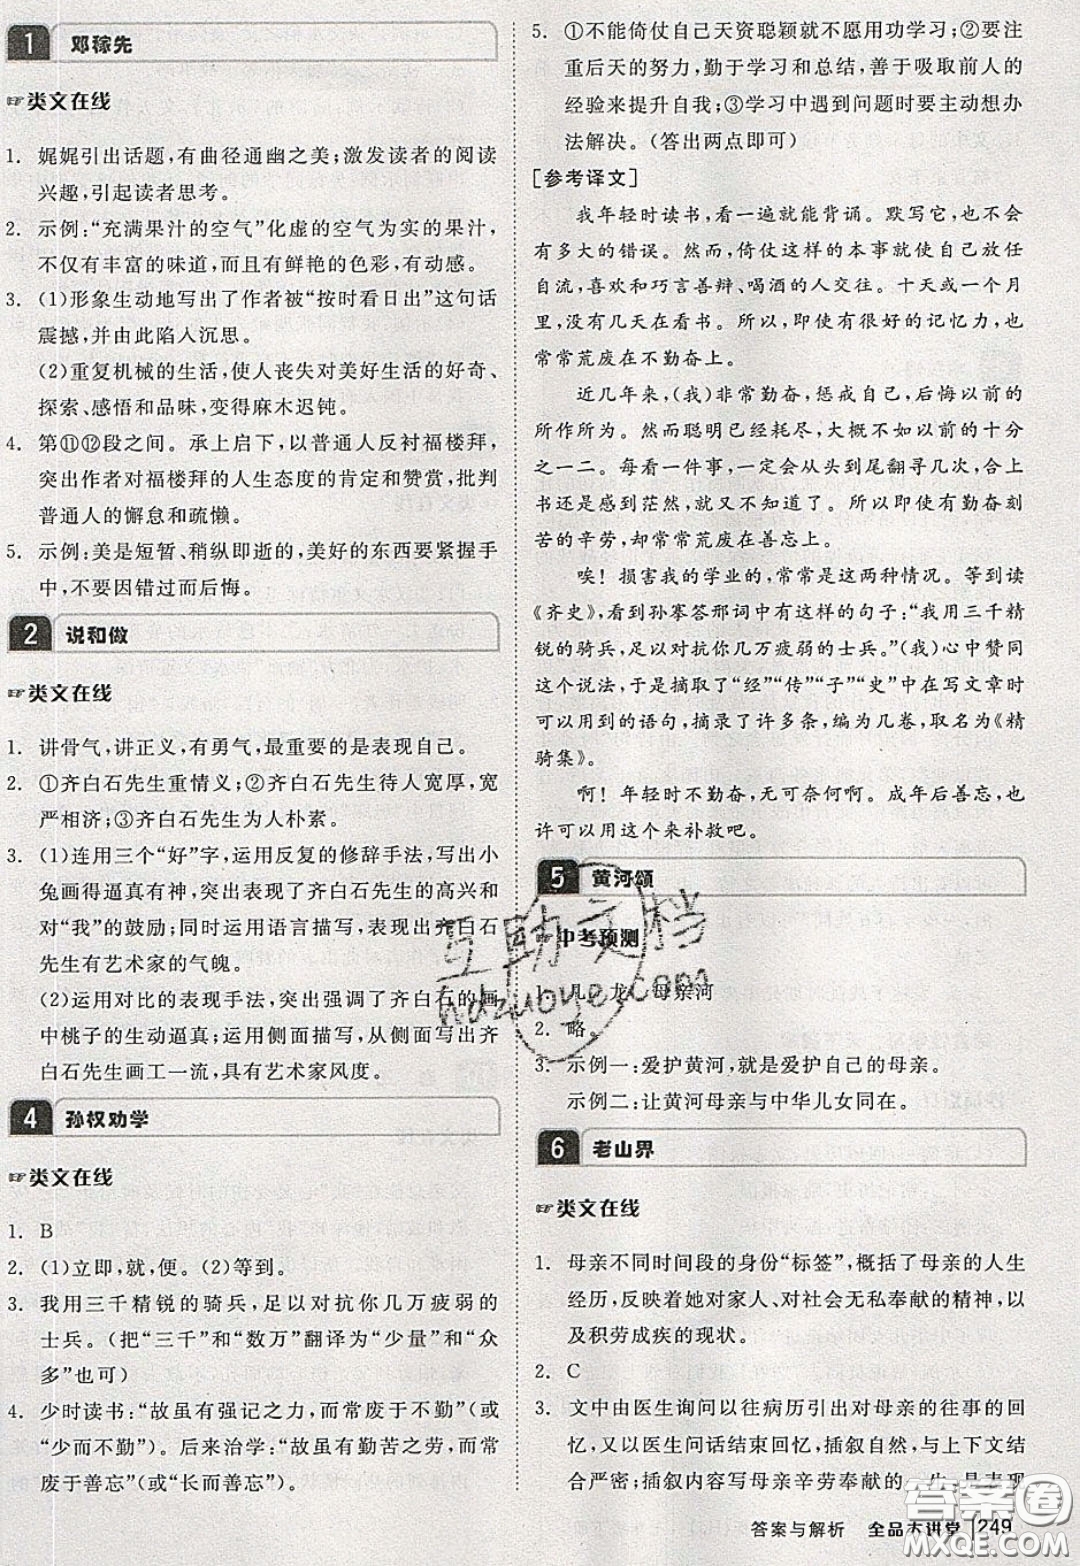 1 邓稼先
☞类文在线
1. 娓娓引出话题,有曲径通幽之美;激发读者的阅读
兴趣,引起读者思考。
2. 示例:“充满果汁的空气”化虚的空气为实的果汁,
不仅有丰富的味道,而且有鲜艳的色彩,有动感。
3. (1)形象生动地写出了作者被“按时看日出”这句话
震撼,并由此陷入沉思。
(2)重复机械的生活,使人丧失对美好生活的好奇、
探索、感悟和品味,变得麻木迟钝。
4. 第⑪⑫段之间。承上启下,以普通人反衬福楼拜,
突出作者对福楼拜的人生态度的肯定和赞赏,批判
普通人的懈怠和疏懒。
5. 示例:美是短暂、稍纵即逝的,美好的东西要紧握手
中,不要因错过而后悔。
2 说和做
☞类文在线
1. 讲骨气,讲正义,有勇气,最重要的是表现自己。
2. ①齐白石先生重情义;②齐白石先生待人宽厚,宽
严相济;③齐白石先生为人朴素。
3. (1)连用三个“好”字,运用反复的修辞手法,写出小
兔画得逼真有神,突出表现了齐白石先生的高兴和
对“我”的鼓励;同时运用语言描写,表现出齐白石
先生有艺术家的气魄。
(2)运用对比的表现手法,突出强调了齐白石的画
中桃子的生动逼真;运用侧面描写,从侧面写出齐
白石先生画工一流,具有艺术家风度。
4 孙权劝学
☞类文在线
1. B
2. (1)立即,就,便。(2)等到。
3. 我用三千精锐的骑兵,足以对抗你几万疲弱的
士兵。(把“三千”和“数万”翻译为“少量”和“众
多”也可)
4. 少时读书:“故虽有强记之力,而常废于不勤”(或
“少而不勤”)。后来治学:“故虽有勤苦之劳,而常
废于善忘”(或“长而善忘”)。
5. ①不能倚仗自己天资聪颖就不愿用功学习;②要
注重后天的努力,勤于学习和总结,善于吸取前人的
经验来提升自我;③学习中遇到问题时要主动想办
法解决。(答出两点即可)
[参考译文]
我年轻时读书,看一遍就能背诵。默写它,也不会
有多大的错误。然而,倚仗这样的本事就使自己放任
自流,喜欢和巧言善辩、喝酒的人交往。十天或一个月
里,没有几天在看书。所以,即使有很好的记忆力,也
常常荒废在不勤奋上。
近几年来,(我)非常勤奋,惩戒自己,后悔以前的
所作所为。然而聪明已经耗尽,大概不如以前的十分
之一二。每看一件事,一定会从头到尾翻寻几次,合上
书还是感到茫然,就又不知道了。所以虽然有勤奋刻
苦的辛劳,却常常荒废在善忘上。
唉!损害我的学业的,常常是这两种情况。等到读
《齐史》,看到孙搴答邢词中有这样的句子:“我用三千精
锐的骑兵,足以对抗你几万疲弱的士兵。”(我)心中赞同
这个说法,于是摘取了“经”“传”“子”“史”中在写文章时
可以用到的语句,摘录了许多条,编为几卷,取名为《精
骑集》。
啊!年轻时不勤奋,无可奈何啊。成年后善忘,也
许可以用这个来补救吧。
5 黄河颂
中考预测
1. 几 龙 母亲河
2. 略。
3. 示例一:爱护黄河,就是爱护自己的母亲。
示例二:让黄河母亲与中华儿女同在。
6 老山界
☞类文在线
1. 母亲不同时间段的身份“标签”,概括了母亲的人生
经历,反映着她对家人、对社会无私奉献的精神,以
及积劳成疾的现状。
2. C
3. 文中由医生询问以往病历引出对母亲的往事的回
忆,又以医生问话结束回忆,插叙自然,与上下文结
合严密;插叙内容写母亲辛劳奉献的一生,是表现
答案与解析 全品大讲堂 249
互助文档
hdzuoye.com
答案圈
MXQE.COM